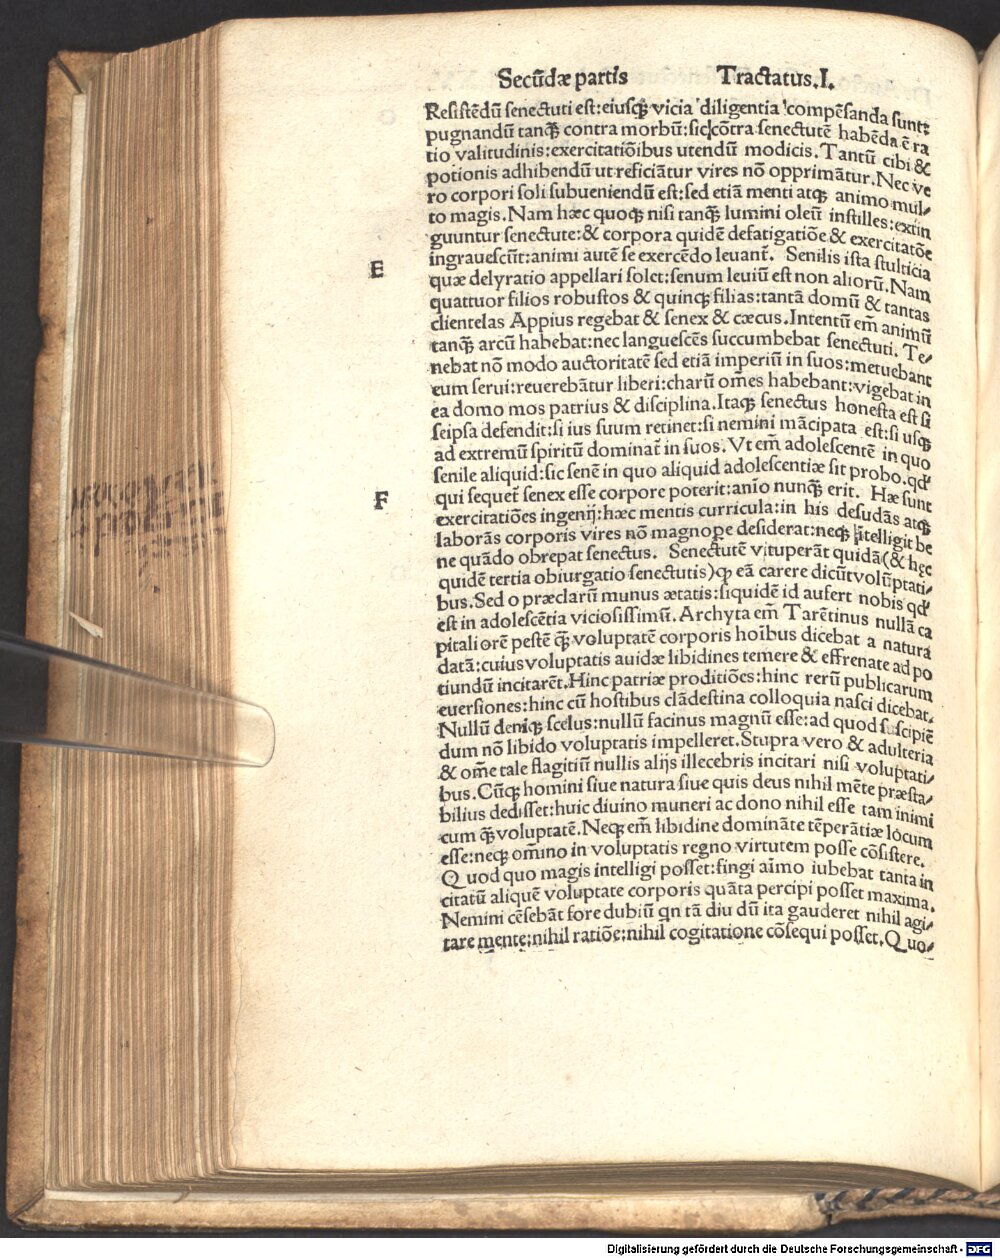 Secūdæ partis Tractatus.I.
Resistēdū senectuti est:eiusq̃ꝫ vicia diligentia compēsanda sunt:
pugnandū tanq̃ꝫ contra morbū:sic cōtra senectutē habēda ē ra
tio valitudinis:exercitatiōibus utendū modicis.Tantū cibi &
potionis adhibendū ut reficiātur vires nō opprimātur.Nec ve
ro corpori soli subueniendū est:sed etiā menti atqꝫ animo mul⸗
to magis.Nam hæc quoqꝫ nisi tanq̃ꝫ lumini oleū instilles:extin
guuntur senectute:& corpora quidē defatigatiōe & exercitatōe
ingrauescūt:animi autē se exercēdo leuant̄. Senilis ista stulticia
E
quæ delyratio appellari solet:senum leuiū est non aliorū.Nam
quattuor filios robustos & quinqꝫ filias:tantā domū & tantas
clientelas Appius regebat & senex & cæcus.Intentū em̄ animū
tanq̃ꝫ arcū habebat:nec languescēs succumbebat senectuti. Te⸗
nebat nō modo auctoritatē sed etiā imperiū in suos:metuebant
eum serui:reuerebātur liberi:charū om̄es habebant:vigebat in
ea domo mos patrius & disciplina.Itaqꝫ senectus honesta est si
seipsa defendit:si ius suum retinet:si nemini mācipata est:si usqꝫ
ad extremū spiritū dominat̄ in suos.Vt em̄ adolescentē in quo
senile aliquid:sic senē in quo aliquid adolescentiæ sit probo.qđ
qui sequet̄ senex esse corpore poterit:anīo nunq̃ꝫ erit. Hæ sunt
F
exercitatiōes ingenij:hæc mentis curricula:in his desudās atqꝫ
laborās corporis vires nō magnope desiderat:neqꝫ ītelligit be
ne quādo obrepat senectus. Senectutē vituperāt quidā(& hęc
quidē tertia obiurgatio senectutis)ꝙ eā carere dicūt volūptati⸗
bus.Sed o præclarū munus ætatis:siquidē id aufert nobis qđ
est in adolescētia viciosissimū.Archyta em̄ Tarētinus nullā ca
pitaliorē pestē q̃ꝫ voluptatē corporis hoībus dicebat a natura
datā:cuius voluptatis auidæ libidines temere & effrenate ad po
tiundū incitarēt.Hinc patriæ proditiōes:hinc rerū publicarum
euersiones:hinc cū hostibus clādestina colloquia nasci dicebat.
Nullū deniqꝫ scelus:nullū facinus magnū esse:ad quod suscipiē
dum nō libido voluptatis impelleret.Stupra vero & adulteria
& om̄e tale flagitiū nullis alijs illecebris incitari nisi voluptati⸗
bus.Cūqꝫ homini siue natura siue quis deus nihil mēte præsta⸗
bilius dedisset:huic diuino muneri ac dono nihil esse tam inimi
cum q̃ꝫ voluptatē.Neqꝫ em̄ libidine domināte tēperātiæ locum
esse:neqꝫ om̄ino in voluptatis regno virtutem posse cōsistere.
Quod quo magis intelligi posset:fingi aīmo iubebat tanta in
citatū aliquē voluptate corporis quāta percipi posset maxima.
Nemini cēsebāt fore dubiū qn tā diu dū ita gauderet nihil agi⸗
tare mente:nihil ratiōe:nihil cogitatione cōsequi posset.Quo⸗
Digitalisierung gefördert durch die Deutsche Forschungsgemeinschaft - DFG